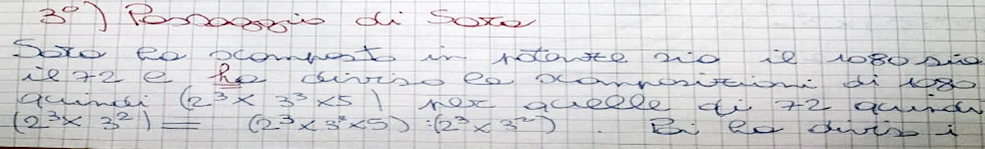 3°) Passaggio di Sara
Sara ha scomposto in potenze sia il 1080 sia
il 72 e ha diviso le scomposizioni di 1080
quindi (2³ x 3³ x5) per quelle di 72 quindi
(2³x 3²) = (2³x3³x5) :(2³x3²) . Poi ha diviso i